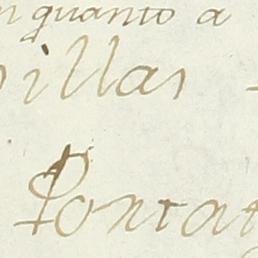 nquanto a
illas
Pontat